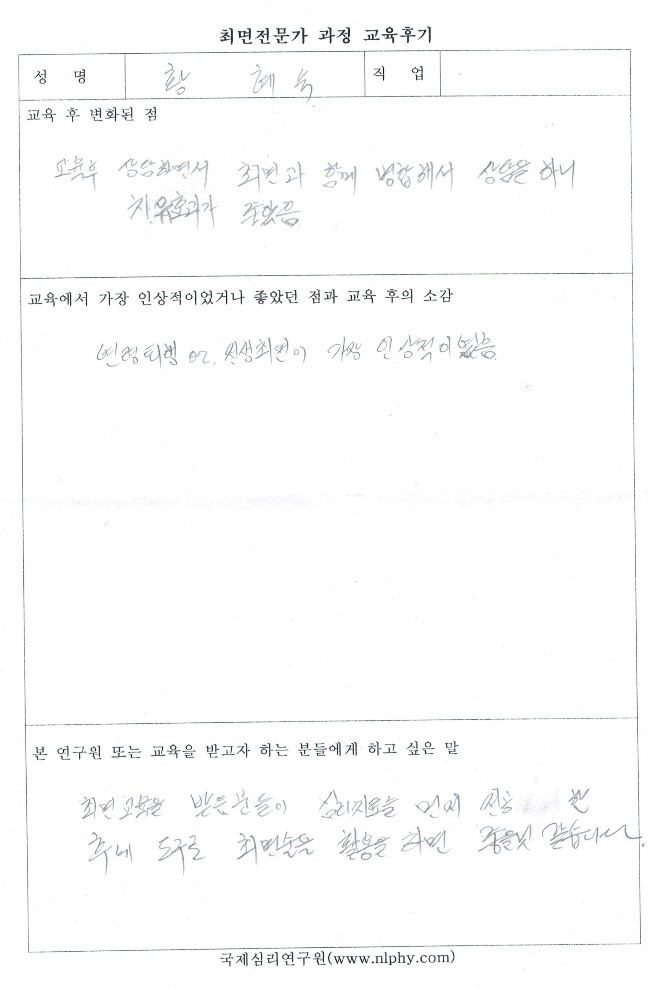 최면전문가 과정 교육후기
성 명 황 혜숙 직 업
교육 후 변화된 점
교육후 상담하면서 최면과 함께 병합해서 상담을 하니
치유효과가 좋았음
교육에서 가장 인상적이었거나 좋았던 점과 교육 후의 소감
연령퇴행 or 전생최면이 가장 인상적이었음.
본 연구원 또는 교육을 받고자 하는 분들에게 하고 싶은 말
최면교육을 받은분들이 심리치료를 먼저 전공 한
후에 도구로 최면술을 활용을 하면 좋을것 같습니다.
국제심리연구원(www.nlphy.com)